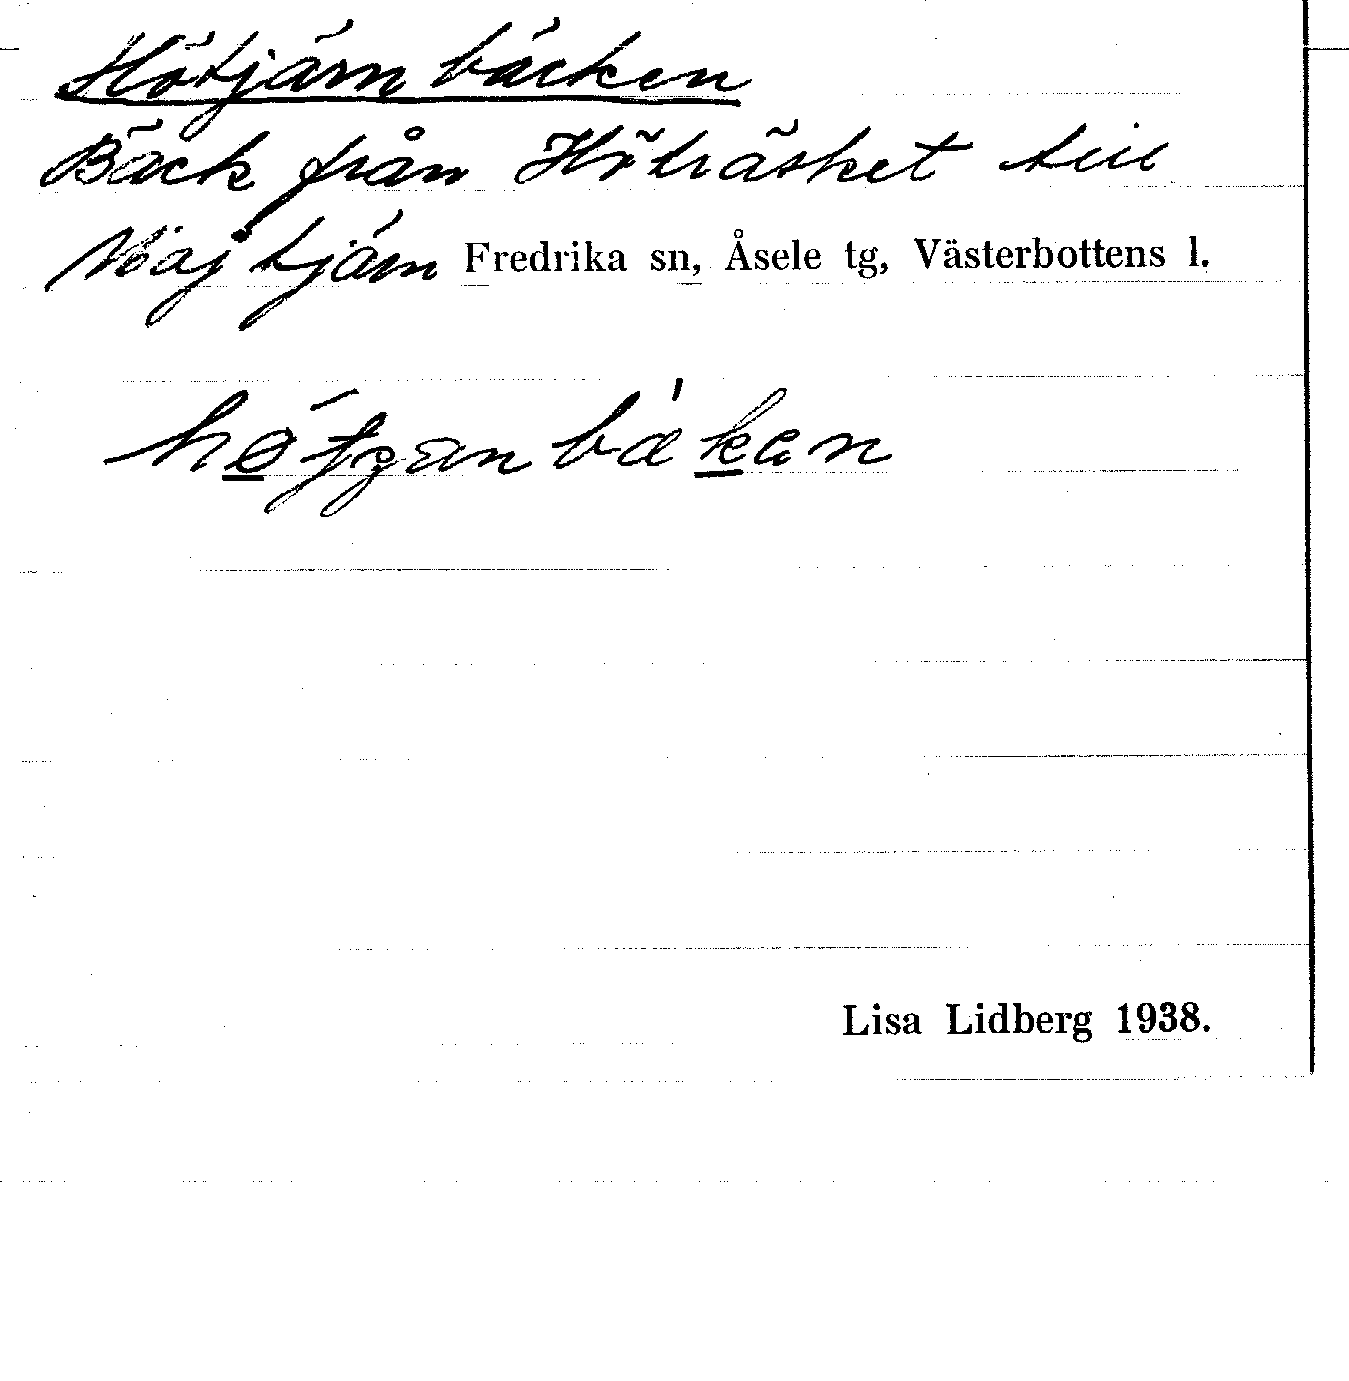 Hötjärnbäcken
Bäck från Höträsket till
tjärn Fredrika sn, Åsele tg, Västerbottens l.
Lisa Lidberg 1938.